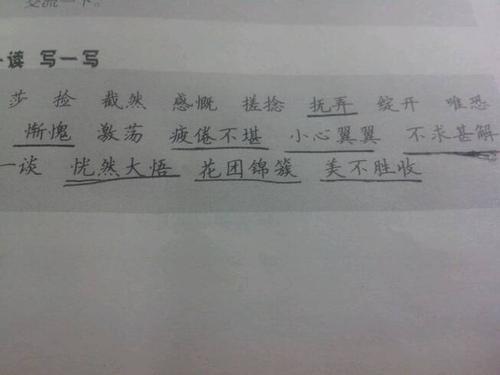 交流一下。
读 写一写
莎 捡 截然 感慨 搓捻 抚弄 绽开 唯恐
惭愧 激荡 疲倦不堪 小心翼翼 不求甚解
一谈 恍然大悟 花团锦簇 美不胜收